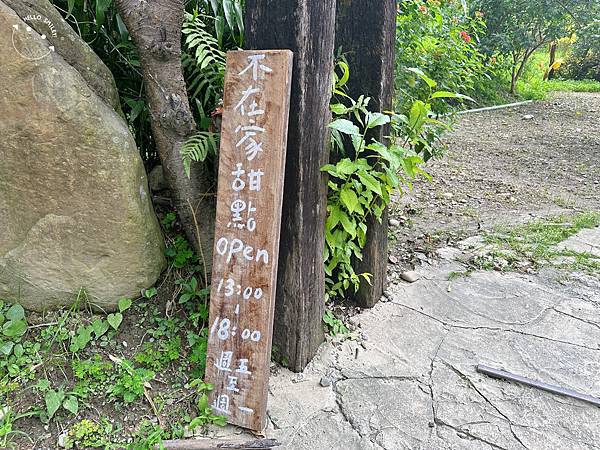 HELLO EMILY!
不在家甜點
open
13:00
|
18:00
週五
至
週一